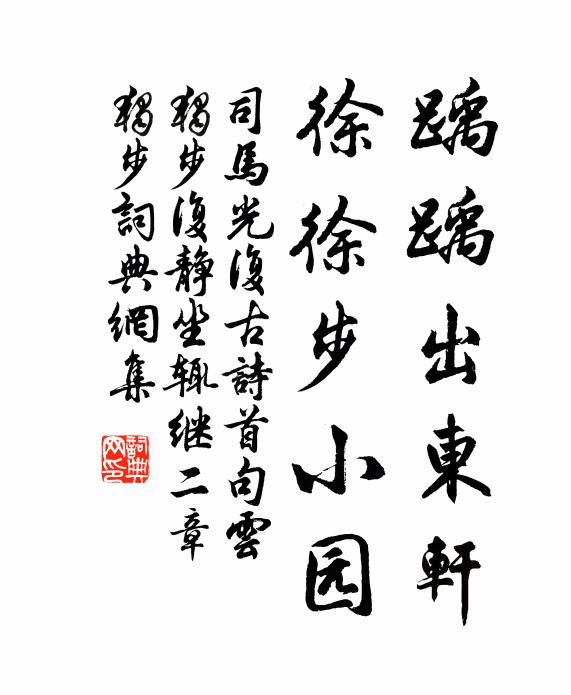 踽踽出東軒
徐徐步小园
司馬光復古詩首句雲
獨步復靜坐輒继二章
獨步詞典網集
詞典网印